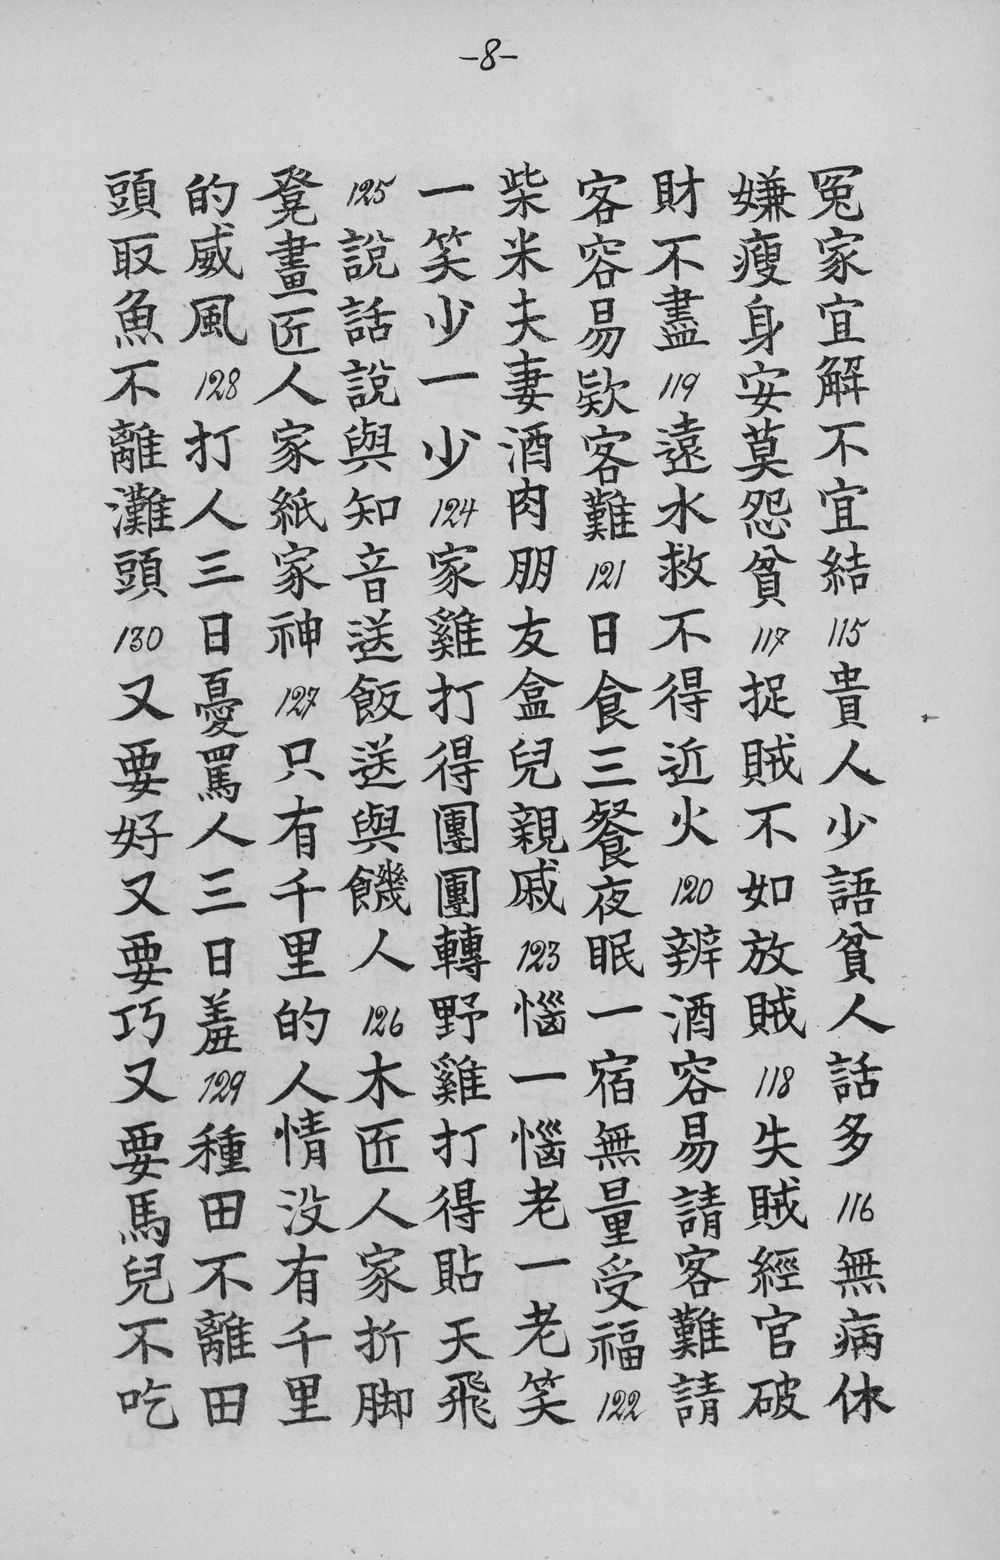 -8-
冤家宜解不宜結115貴人少語貧人話多116無病休
嫌瘦身安莫怨貧117捉賊不如放賊118失賊經官破
財不盡119遠水救不得近火120辨酒容易請客難請
客容易欵客難121日食三餐夜眠一宿無量受福122
柴米夫妻酒肉朋友盒兒親戚123惱一惱老一老笑
一笑少一少124家雞打得團團轉野雞打得貼天飛
125說話說與知音送飯送與饑人126木匠人家折脚
凳畫匠人家紙家神127只有千里的人情没有千里
的威風128打人三日憂罵人三日羞129種田不離田
頭取魚不離灘頭130又要好又要巧又要馬兒不吃